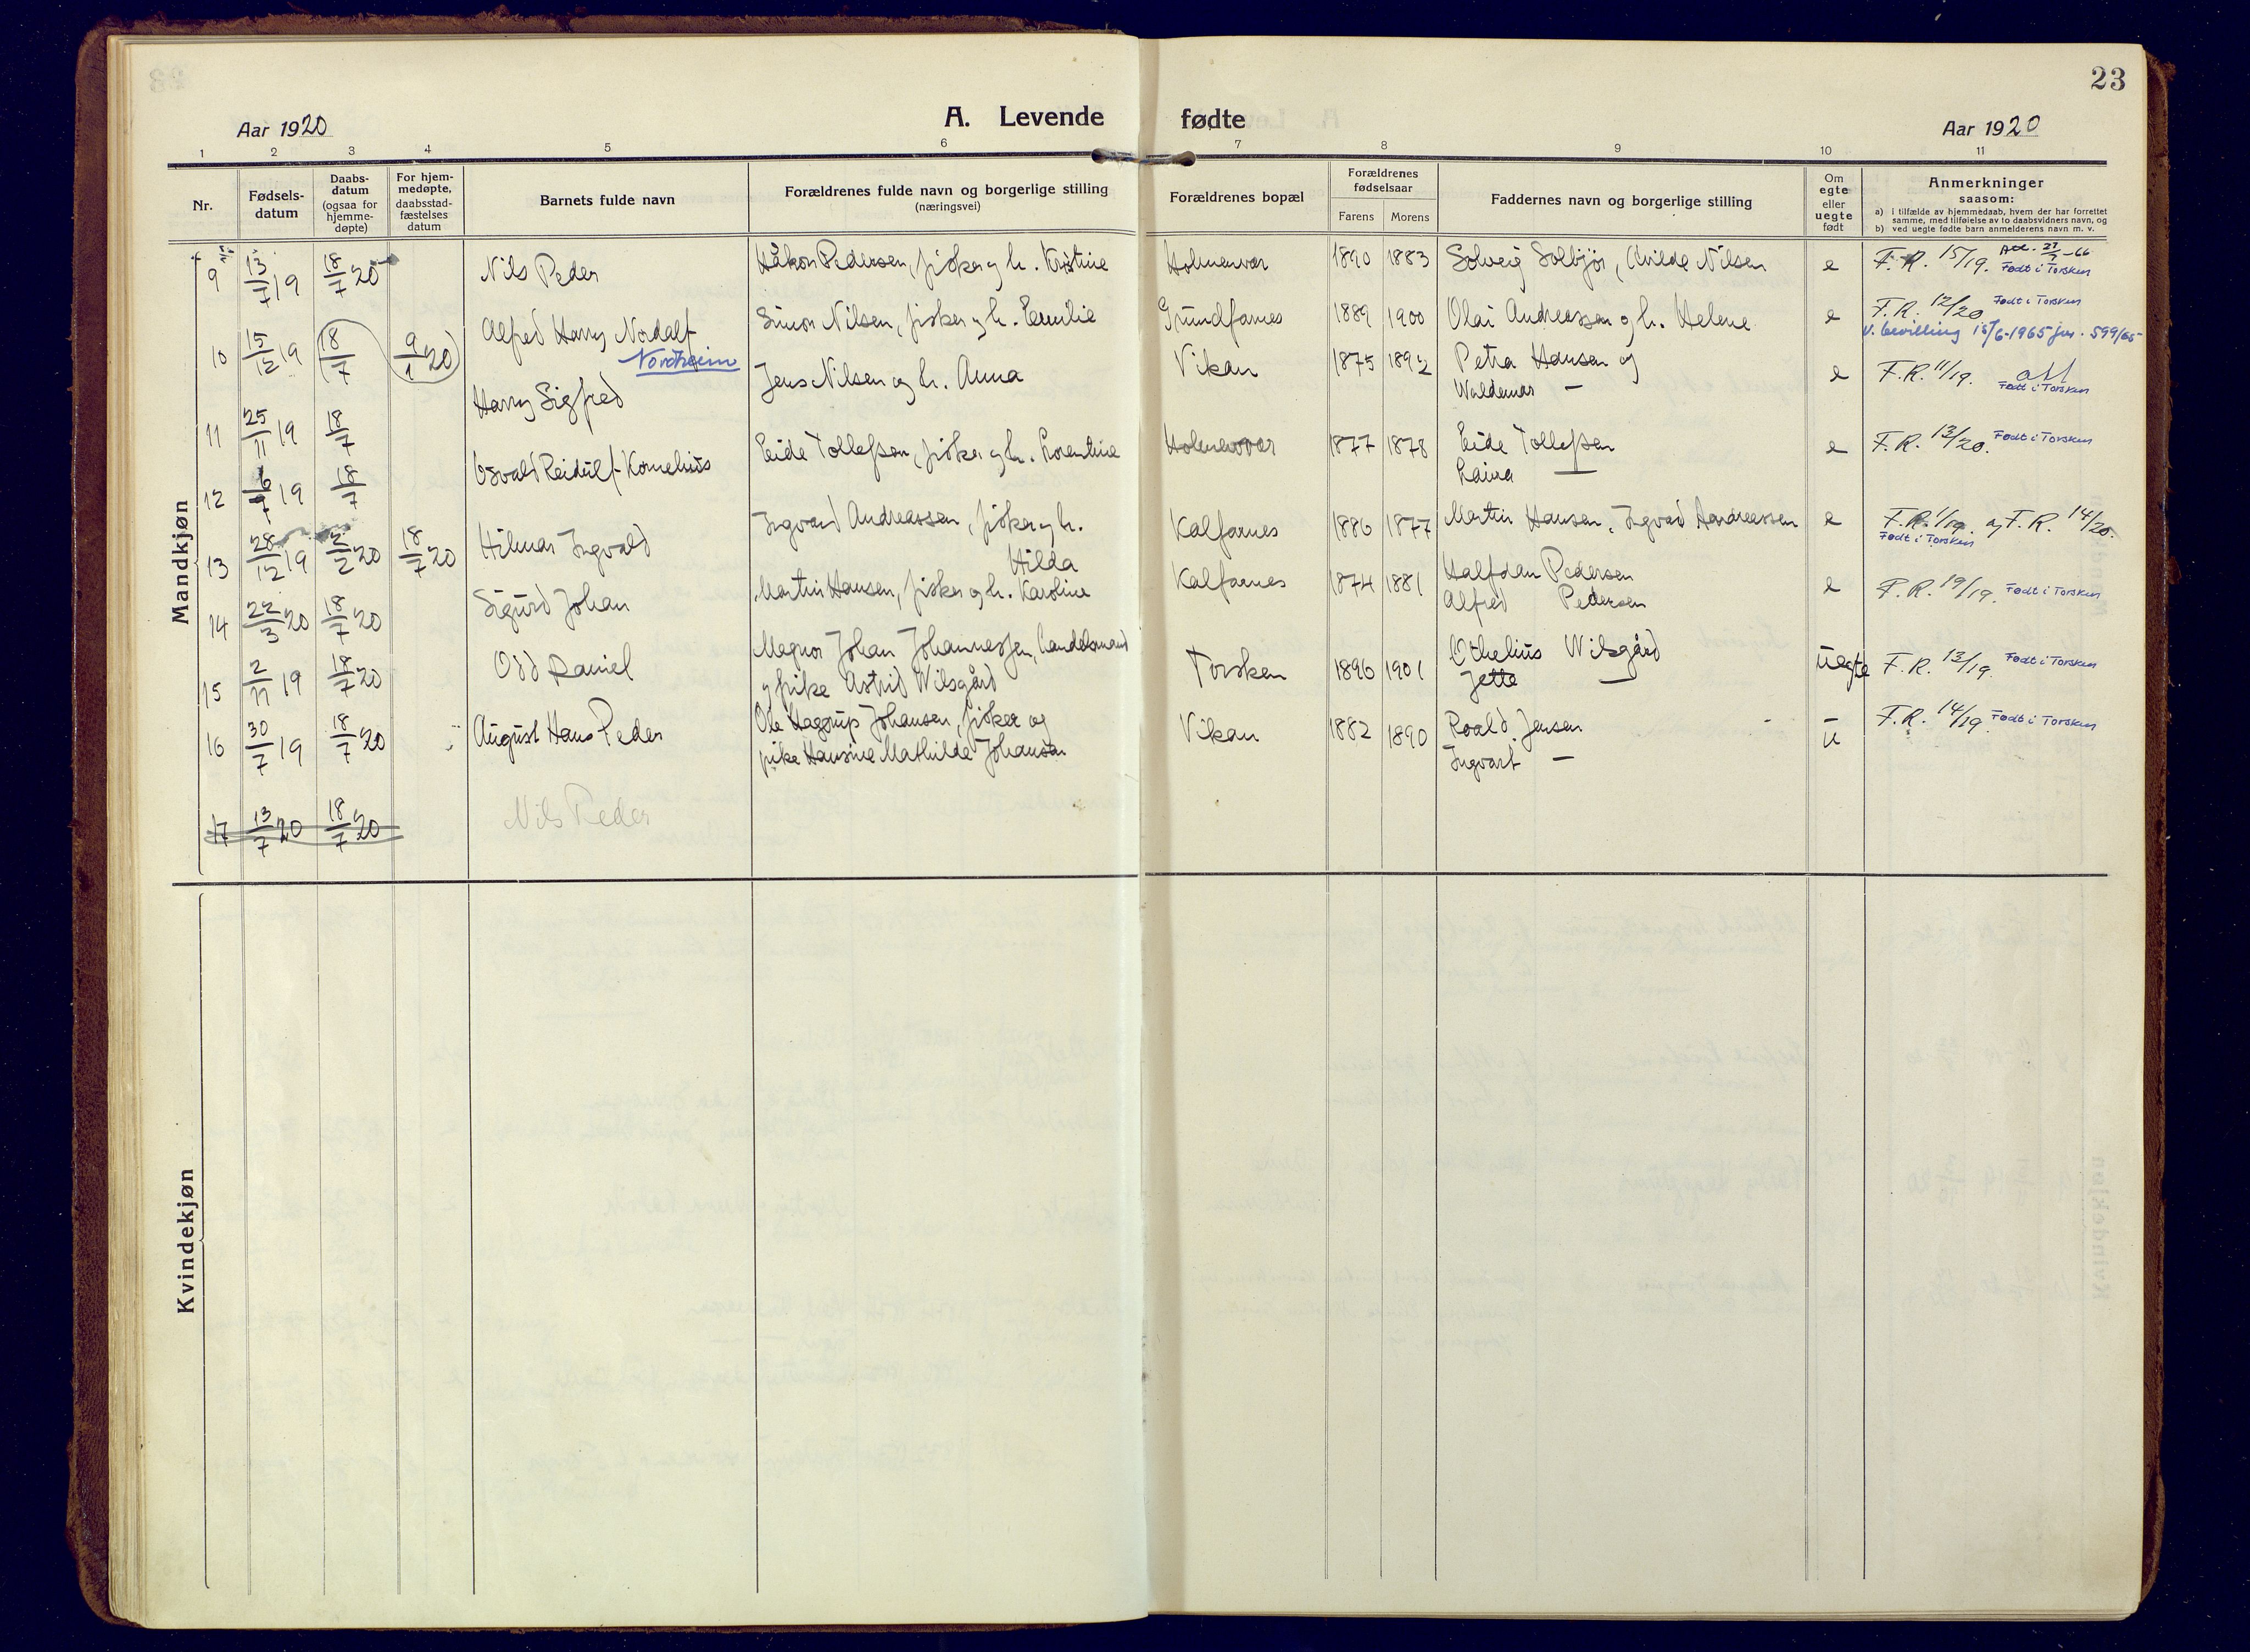 23
Aar 1920
A. Levende fødte
Aar 1920
1 2 3 4 5 6 7 8 9 10 11
Nr.
Fødsels-
datum
Daabs-
datum
(ogsaa for
hjemme-
døpte)
For hjem-
medøpte,
daabsstad-
fæstelses
datum
Barnets fulde navn
Forældrenes fulde navn og borgerlige stilling
(næringsvei)
Forældrenes bopæl
Forældrenes
fødselsaar
Farens Morens
Faddernes navn og borgerlige stilling
Om
egte
eller
uegte
født
Anmerkninger
saasom:
a) i tilfælde av hjemmedaab, hvem der har forrettet
samme, med tilføielse av to daabsvidners navn, og
b) ved uegte fødte barn anmelderens navn m. v.
Mandkjøn
9 13/7 19 18/7 20 Nils Peder Håkon Pedersen, fisker og h. Kristine Holmenvær 1890 1883 Solveig Solbjør, Nilsen e F.R. 15/19. Att. 27/7-66
Født i Torsken
10 15/12 19 18/7 9/1 20 Alfred Harry Nordalf Simon Nilsen, fisker og h. Emilie Grundfarnes 1889 1900 Olai Andreassen og h. Helene e F.R. 12/20 Født i Torsken
Nordheim
v. bevilling 18/6-1965 jnr. 599/65
11 25/11 19 18/7 Harry Sigfred Jens Nilsen og h. Anna Vikan 1875 1892 Petra Hansen og
Waldemar — e F.R. 11/19. att
Født i Torsken
12 6/9 19 18/7 Osvald Reidulf Kornelius Eide Tollefsen, fisker og h. Lorentine Holmenvær 1877 1878 Eide Tollefsen
Laura — e F.R. 13/20. Født i Torsken
13 28/12 19 2/2 20 18/7 20 Hilmar Ingvald Ingvard Andreassen, fisker og h.
Hilda Kalfarnes 1886 1877 Martin Hansen, Ingvard Andreassen e F.R. 1/19. og F.R. 14/20.
Født i Torsken
14 22/3 20 18/7 20 Sigurd Johan Martin Hansen, fisker og h. Karoline Kalfarnes 1874 1881 Halfdan Pedersen
Alfred Pedersen e F.R. 19/19. Født i Torsken
15 2/11 19 18/7 20 Odd Daniel Magnor Johan Johannessen, handelsmand
og pike Astrid Wilsgård Torsken 1896 1901 Othelius Wilsgård
Jette — uegte F.R. 13/19. Født i Torsken
16 30/7 19 18/7 20 August Hans Peder Ole Hagerup Johansen, fisker og
pike Hansine Mathilde Johansen Vikan 1882 1890 Roald Jensen
Ingvart — u F.R. 14/19 Født i Torsken
17 13/7 20 18/7 20 Nils Peder
Kvindekjøn